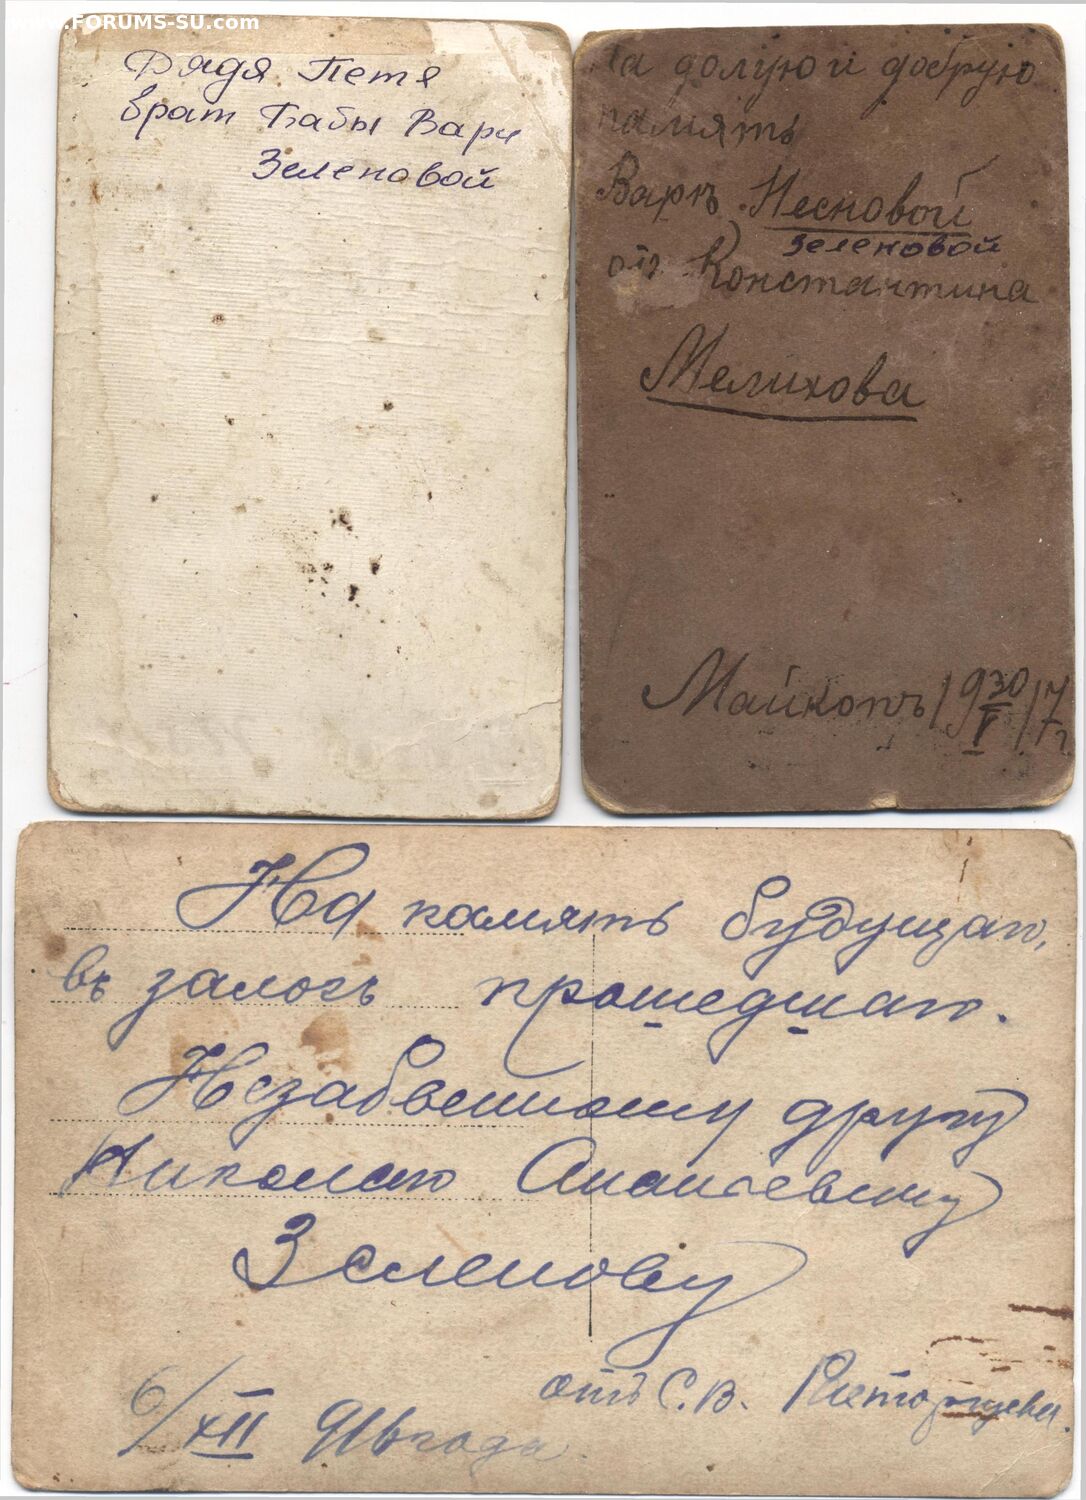 www.FORUMS-SU.com
Дядя Петя
брат Бабы Вари
Зеленовой
На долгую и добрую
память
Варѣ Песковой
Зеленовой
отъ Константина
Мелихова
Майкопъ 1930/V17г
На память будущаго,
въ залогъ прошедшаго.
Незабвенному другу
Николаю Ананьевичу
Зеленову
отъ С.В.
6/XII 916 года.